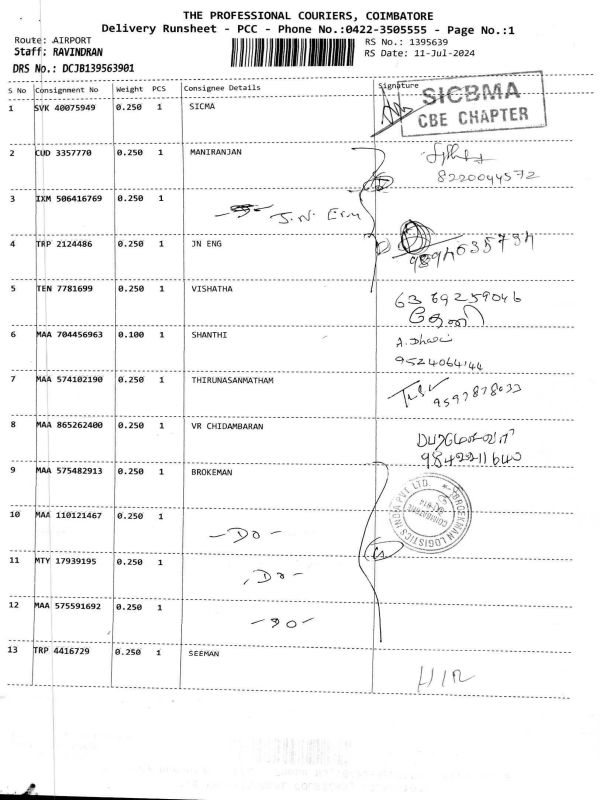 THE PROFESSIONAL COURIERS, COIMBATORE
Delivery Runsheet - PCC - Phone No.:0422-3505555 - Page No.:1
Route: AIRPORT
RS No.: 1395639
Staff: RAVINDRAN
RS Date: 11-Jul-2024
DRS No.: DCJB139563901
S No Consignment No Weight PCS Consignee Details Signature
1 SVK 40075949 0.250 1 SICMA
SICBMA
CBE CHAPTER
2 CUD 3357770 0.250 1 MANIRANJAN
8220044572
3 IXM 506416769 0.250 1
J.N. Enn
4 TRP 2124486 0.250 1 JN ENG
5 TEN 7781699 0.250 1 VISHATHA
63 69259046
தேனி
6 MAA 704456963 0.100 1 SHANTHI
9524064144
7 MAA 574102190 0.250 1 THIRUNASANMATHAM
9597878033
8 MAA 865262400 0.250 1 VR CHIDAMBARAN
9842211640
9 MAA 575482913 0.250 1 BROKEMAN
BROEKMAN LOGISTICS INDIA PVT LTD.
COIMBATORE
10 MAA 110121467 0.250 1
- Do -
11 MTY 17939195 0.250 1
- Do -
12 MAA 575591692 0.250 1
- Do -
13 TRP 4416729 0.250 1 SEEMAN